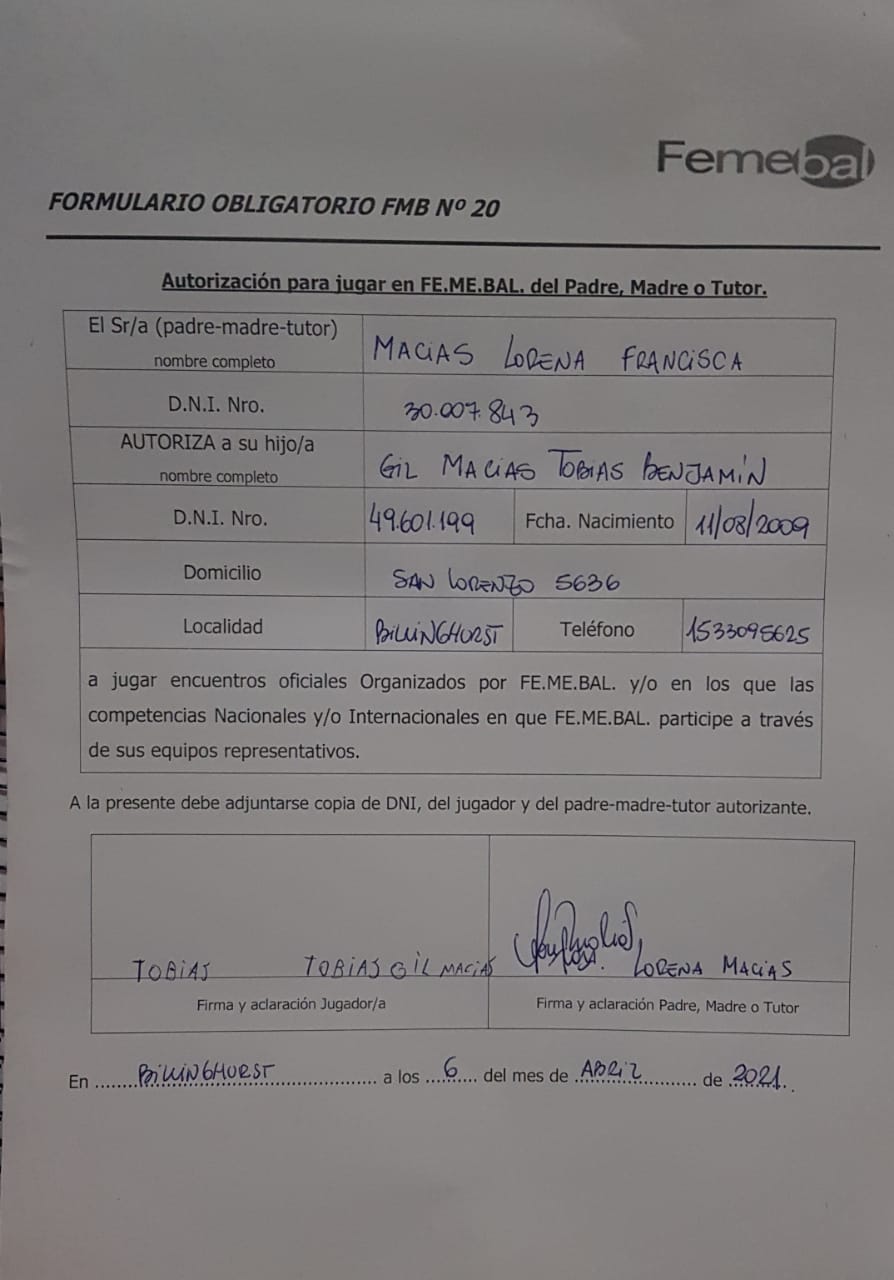 Femebal
FORMULARIO OBLIGATORIO FMB Nº 20
Autorización para jugar en FE.ME.BAL. del Padre, Madre o Tutor.
El Sr/a (padre-madre-tutor)
nombre completo
MACIAS LORENA FRANCISCA
D.N.I. Nro.
30.007.843
AUTORIZA a su hijo/a
nombre completo
GIL MACIAS TOBIAS BENJAMÍN
D.N.I. Nro.
49.601.199
Fcha. Nacimiento
11/08/2009
Domicilio
SAN LORENZO 5636
Localidad
BILLINGHURST
Teléfono
1533095625
a jugar encuentros oficiales Organizados por FE.ME.BAL. y/o en los que las
competencias Nacionales y/o Internacionales en que FE.ME.BAL. participe a través
de sus equipos representativos.
A la presente debe adjuntarse copia de DNI, del jugador y del padre-madre-tutor autorizante.
TOBIAS TOBIAS GIL MACIAS
LORENA MACIAS
Firma y aclaración Jugador/a
Firma y aclaración Padre, Madre o Tutor
En BILLINGHURST a los 6 del mes de ABRIL de 2021.